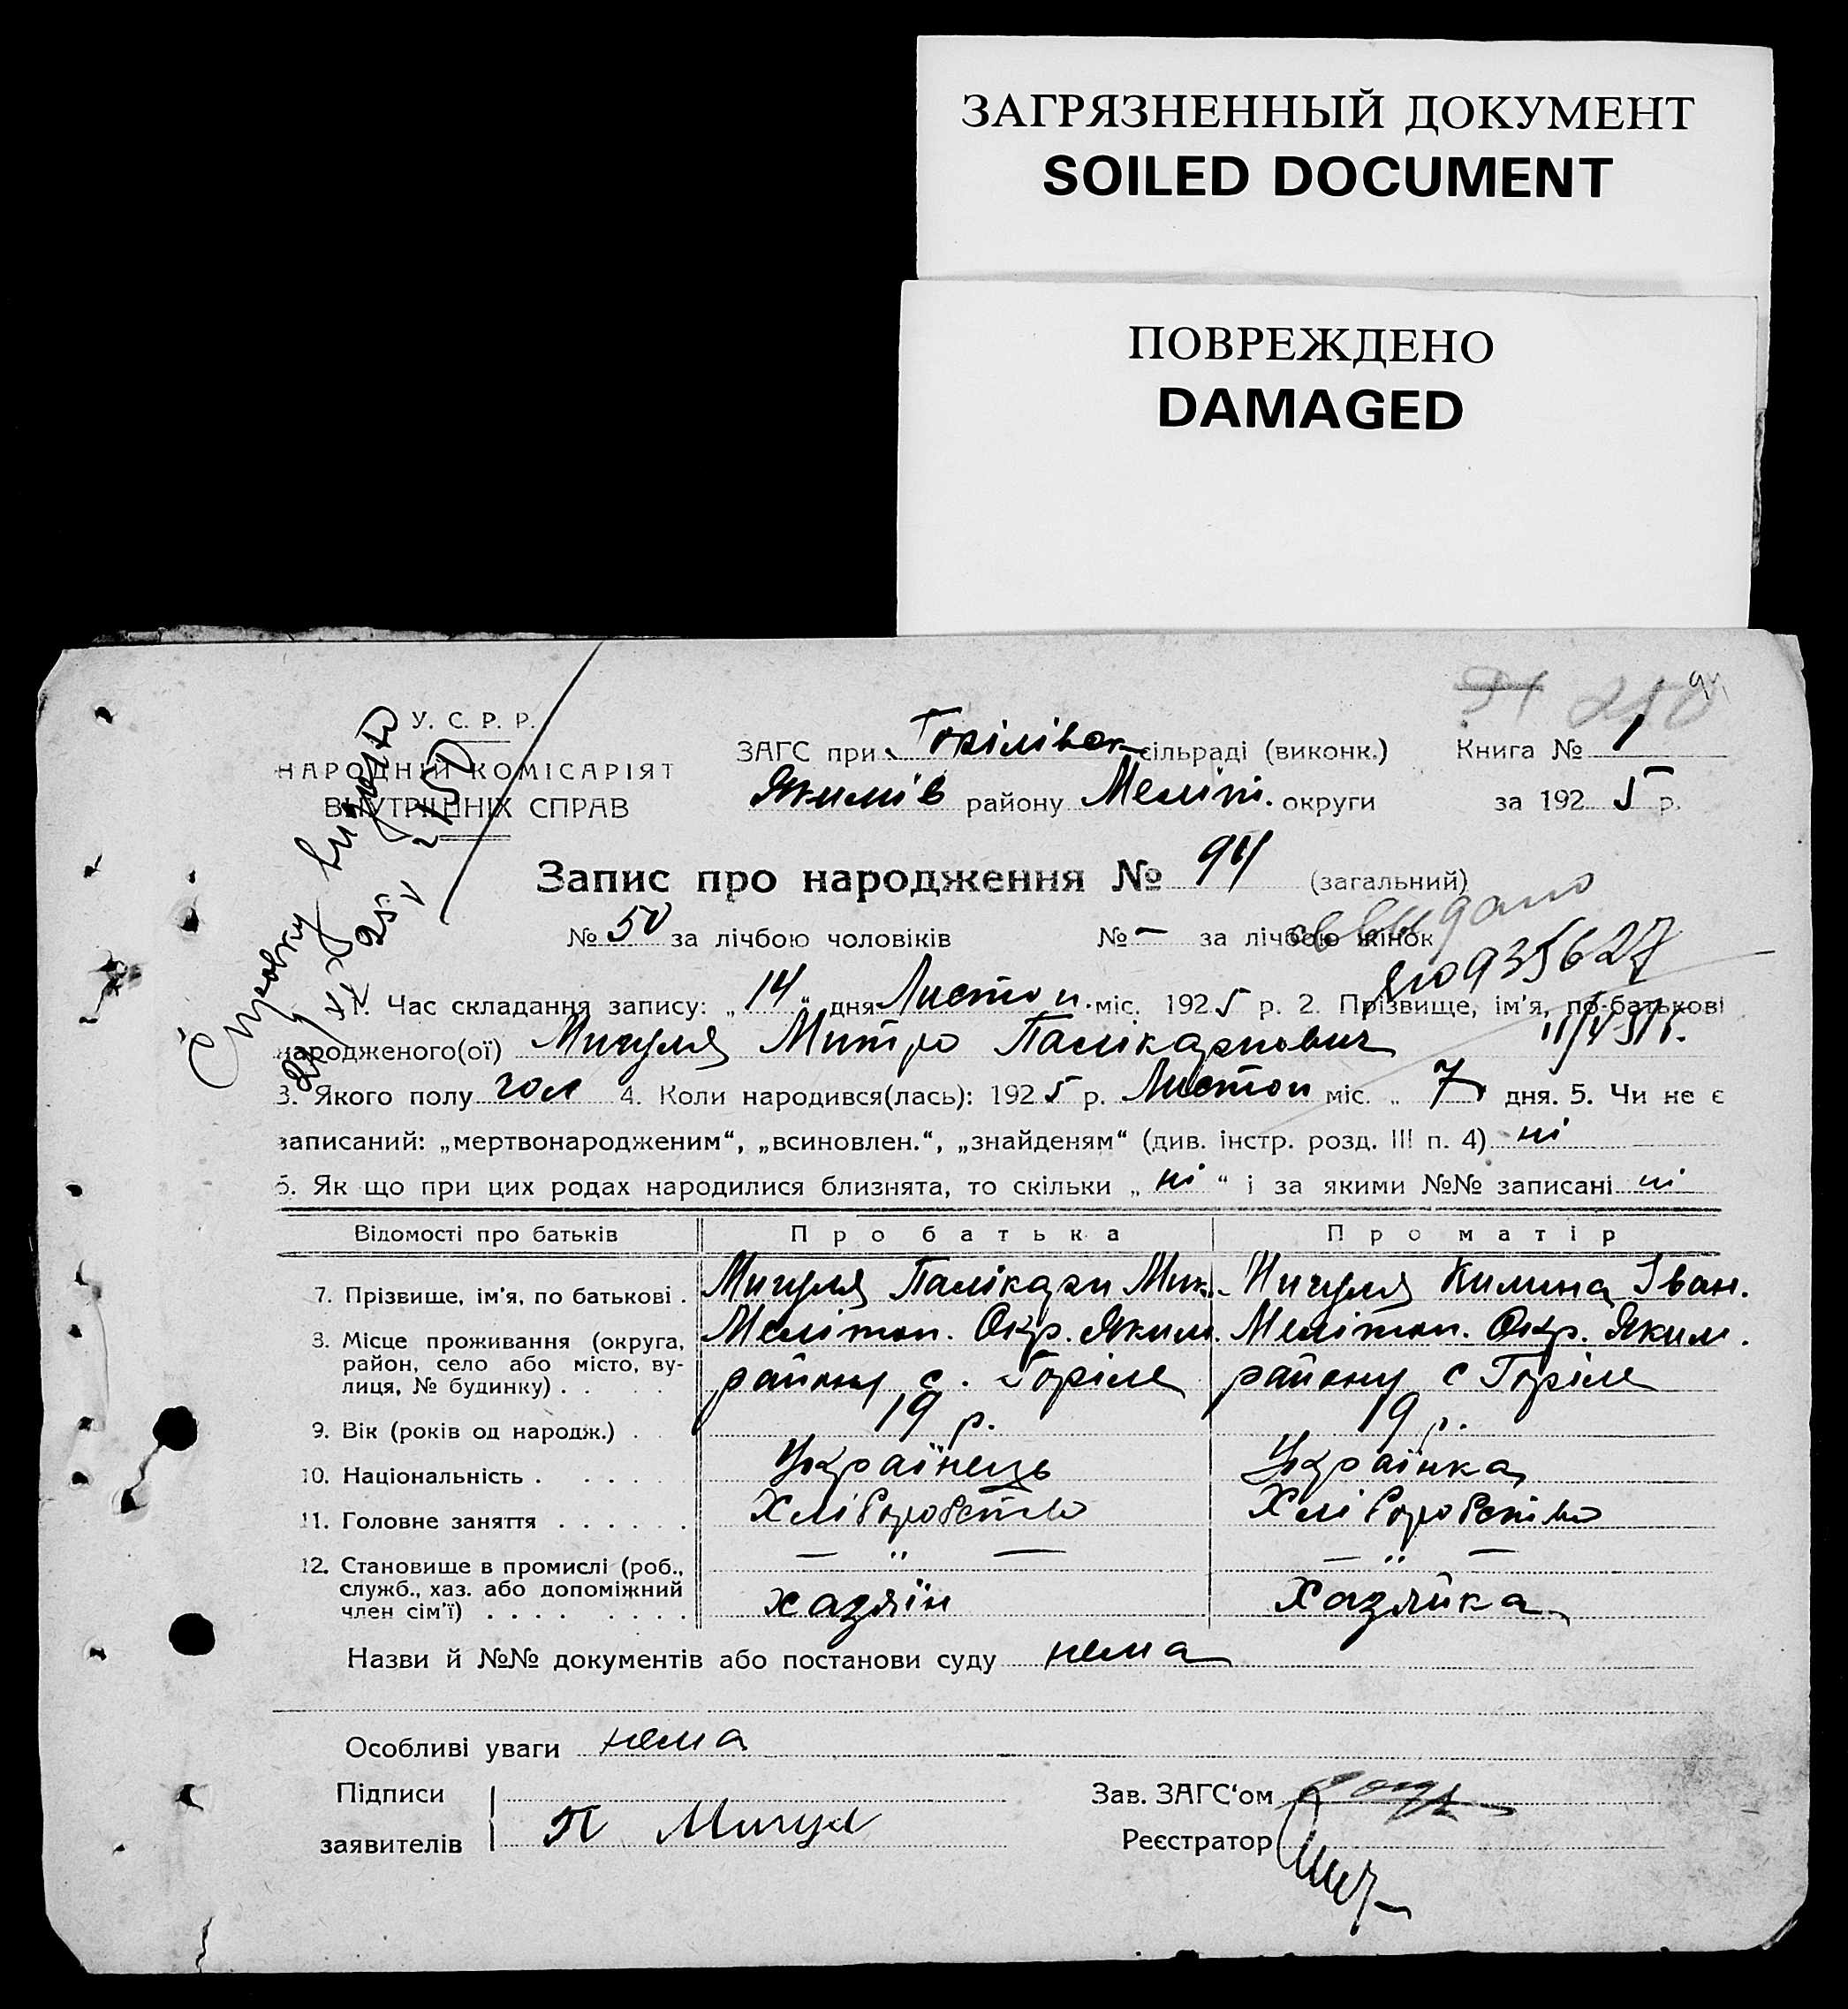 ЗАГРЯЗНЕННЫЙ ДОКУМЕНТ
SOILED DOCUMENT
ПОВРЕЖДЕНО
DAMAGED
94
У. С. Р. Р.
НАРОДНІЙ КОМІСАРІЯТ
ВНУТРІШНІХ СПРАВ
Справку видано
ЗАГС при Горілівск сільраді (виконк.) Книга № 1
Якимів району Меліт. округи за 192 5 р.
Запис про народження № 94 (загальний)
№ 50 за лічбою чоловіків № — за лічбою жінок
св выдано
935627
1. Час складання запису: „ 14 " дня Листоп. міс. 192 5 р. 2. Прізвище, ім'я, по-батькові
народженого(ої) Мигуля Митро Палікарпович
3. Якого полу чол 4. Коли народився(лась): 192 5 р. Листоп міс. „ 7 дня. 5. Чи не є
записаний: „мертвонародженим“, „всиновлен.“, „знайденям“ (див. інстр. розд. III п. 4) ні
6. Як що при цих родах народилися близнята, то скільки „ ні “ і за якими №№ записані ні
Відомості про батьків Про батька Про матір
7. Прізвище, ім'я, по батькові . Мигуля Палікарп Мик. Мигуля Килина Іван.
8. Місце проживання (округа, район, село або місто, вулиця, № будинку) . . Меліton. Окр. Яким. району с. Горіле Меліton. Окр. Яким. району с Горіле
9. Вік (років од народж.) . 19 р. 19 р.
10. Національність . Українець Українка
11. Головне заняття . . . . . . Хліборобство Хліборобство
12. Становище в промислі (роб., — „ — — „ —
служб., хаз. або допоміжний
член сім'ї) . . . . хазяїн Хазяйка
Назви й №№ документів або постанови суду нема
Особливі уваги нема
Підписи Зав. ЗАГС'ом
заявителів П Мигул Реєстратор